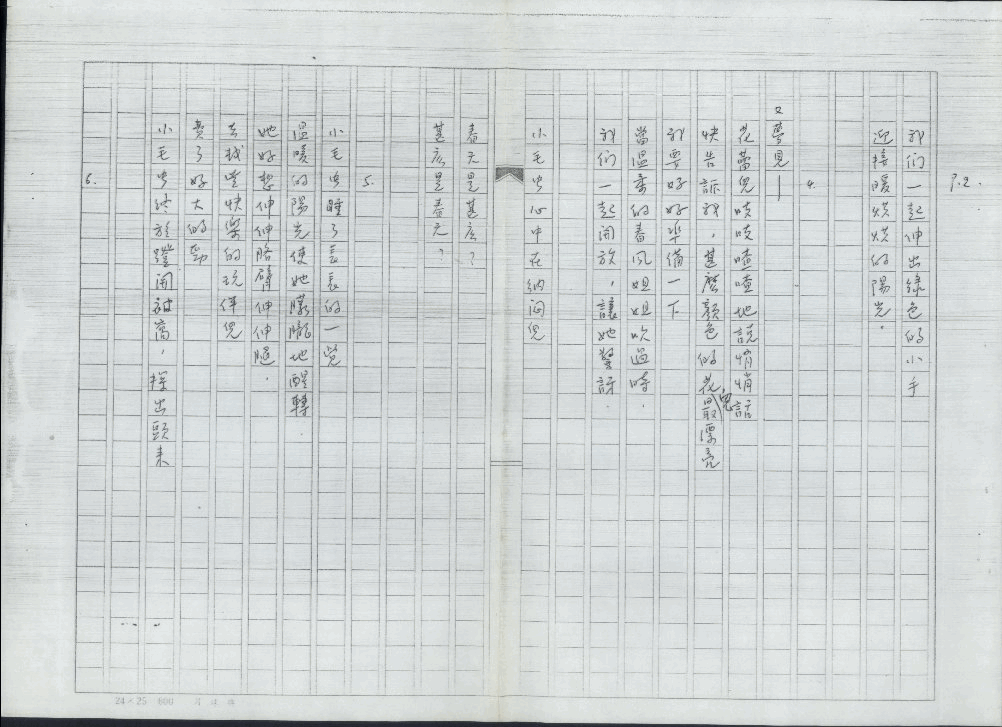 P.2.
我們一起伸出綠色的小手
迎接暖烘烘的陽光．
4.
又夢見——
花蕾兒吱吱喳喳地說悄悄話
快告訴我，甚麼顏色的花兒最漂亮
我要好好準備一下
當溫柔的春風姐姐吹過時．
我們一起開放，讓她驚訝．
小毛虫心中在納悶兒
春天是甚広？
甚広是春天？
5.
小毛虫睡了長長的一覺
溫暖的陽光使她朦朧地醒轉．
她好想伸伸胳臂伸伸腿．
去找些快樂的玩伴兒
費了好大的勁
小毛虫終於蹬開被窩，探出頭来
6.
24×25 600